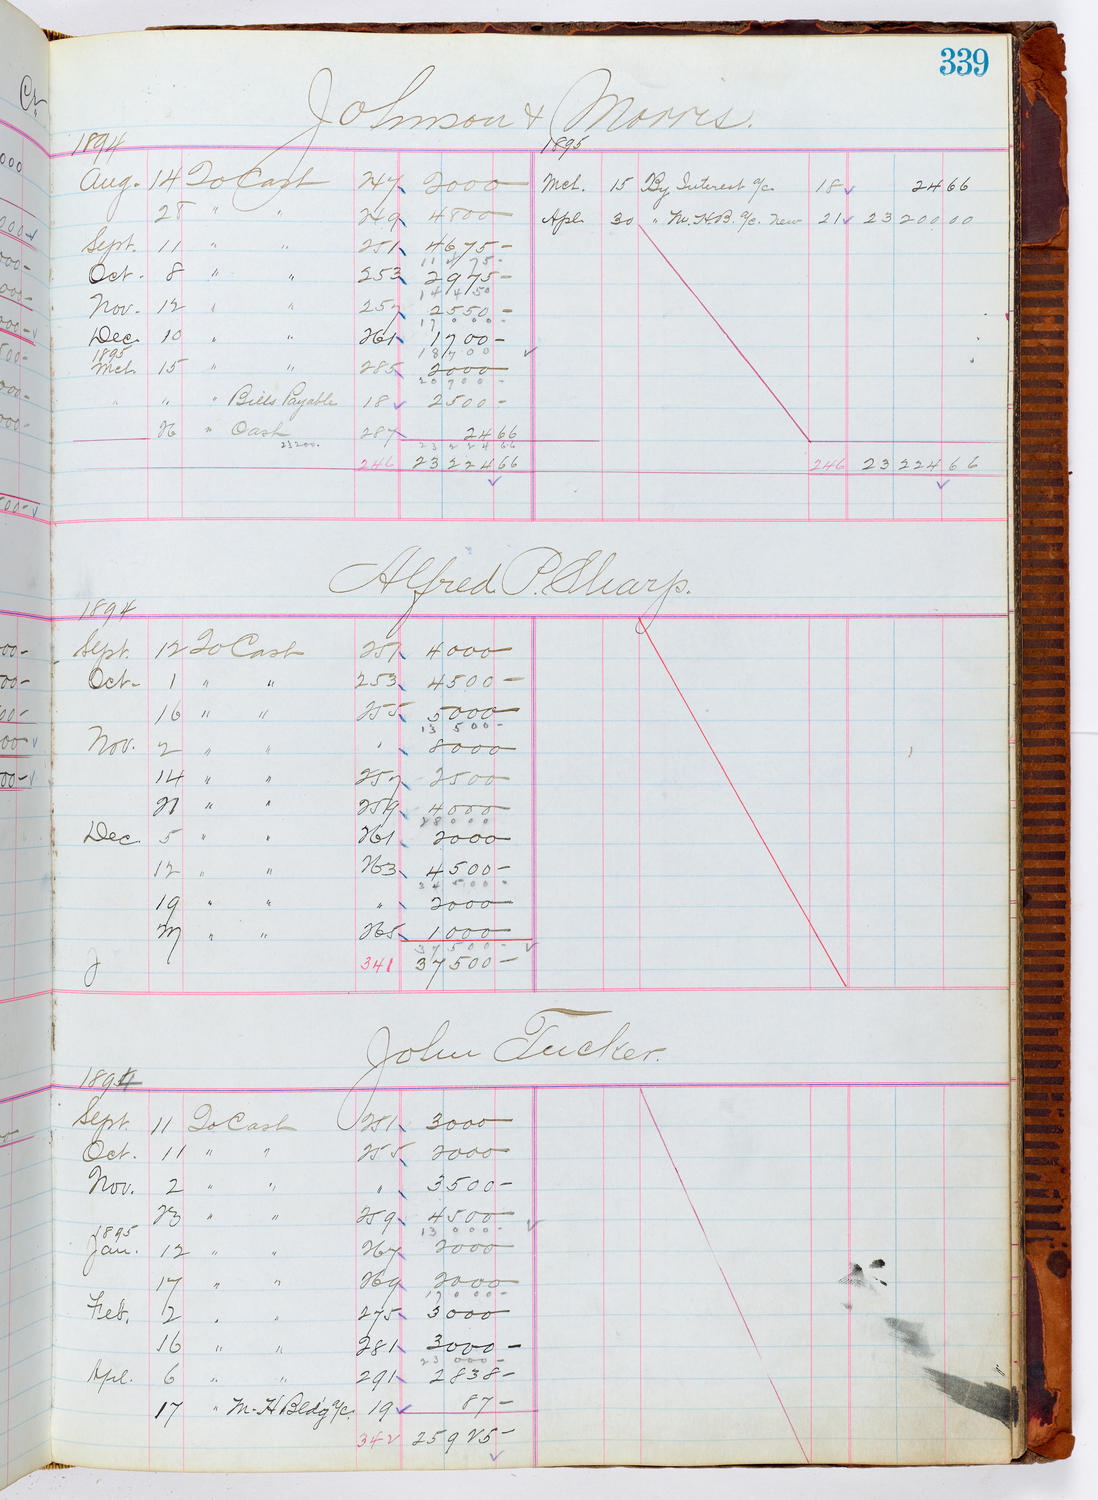 339
Johnson & Morris.
1894
1895
Aug. 14 To Cash 247 2000 Mch. 15 By Interest a/c 18 24 66
28 " " 249 4800 Apl. 30 " M.H.B. a/c. New 21 23 200 00
Sept. 11 " " 251 4675 -
11475 -
Oct. 8 " " 253 2975 -
14450
Nov. 12 " " 257 2550 -
17000 -
Dec. 10 " " 261 1700 -
18700
1895
Mch. 15 " " 285 2000
20700 -
" " " Bills Payable 18 2500 -
26 " Cash 287 24 66
23200. 23224 66
246 23224 66 246 23224 66
Alfred P. Sharp.
1894
Sept. 12 To Cash 251 4000
Oct. 1 " " 253 4500 -
16 " " 255 5000
13 500 -
Nov. 2 " " " 8000
14 " " 257 2500
21 " " 259 4000
28000
Dec. 5 " " 261 2000
12 " " 263 4500 -
34500 -
19 " " " 2000
27 " " 265 1000
37500 -
341 37500 -
John Tucker.
1894
Sept. 11 To Cash 251 3000
Oct. 11 " " 255 2000
Nov. 2 " " " 3500 -
23 " " 259 4500
13000 -
1895
Jan. 12 " " 267 2000
17 " " 269 2000
17000 -
Feb. 2 " " 275 3000
16 " " 281 3000 -
23000 -
Apl. 6 " " 291 2838 -
17 " M-H Bldg a/c. 19 87 -
342 25925 -